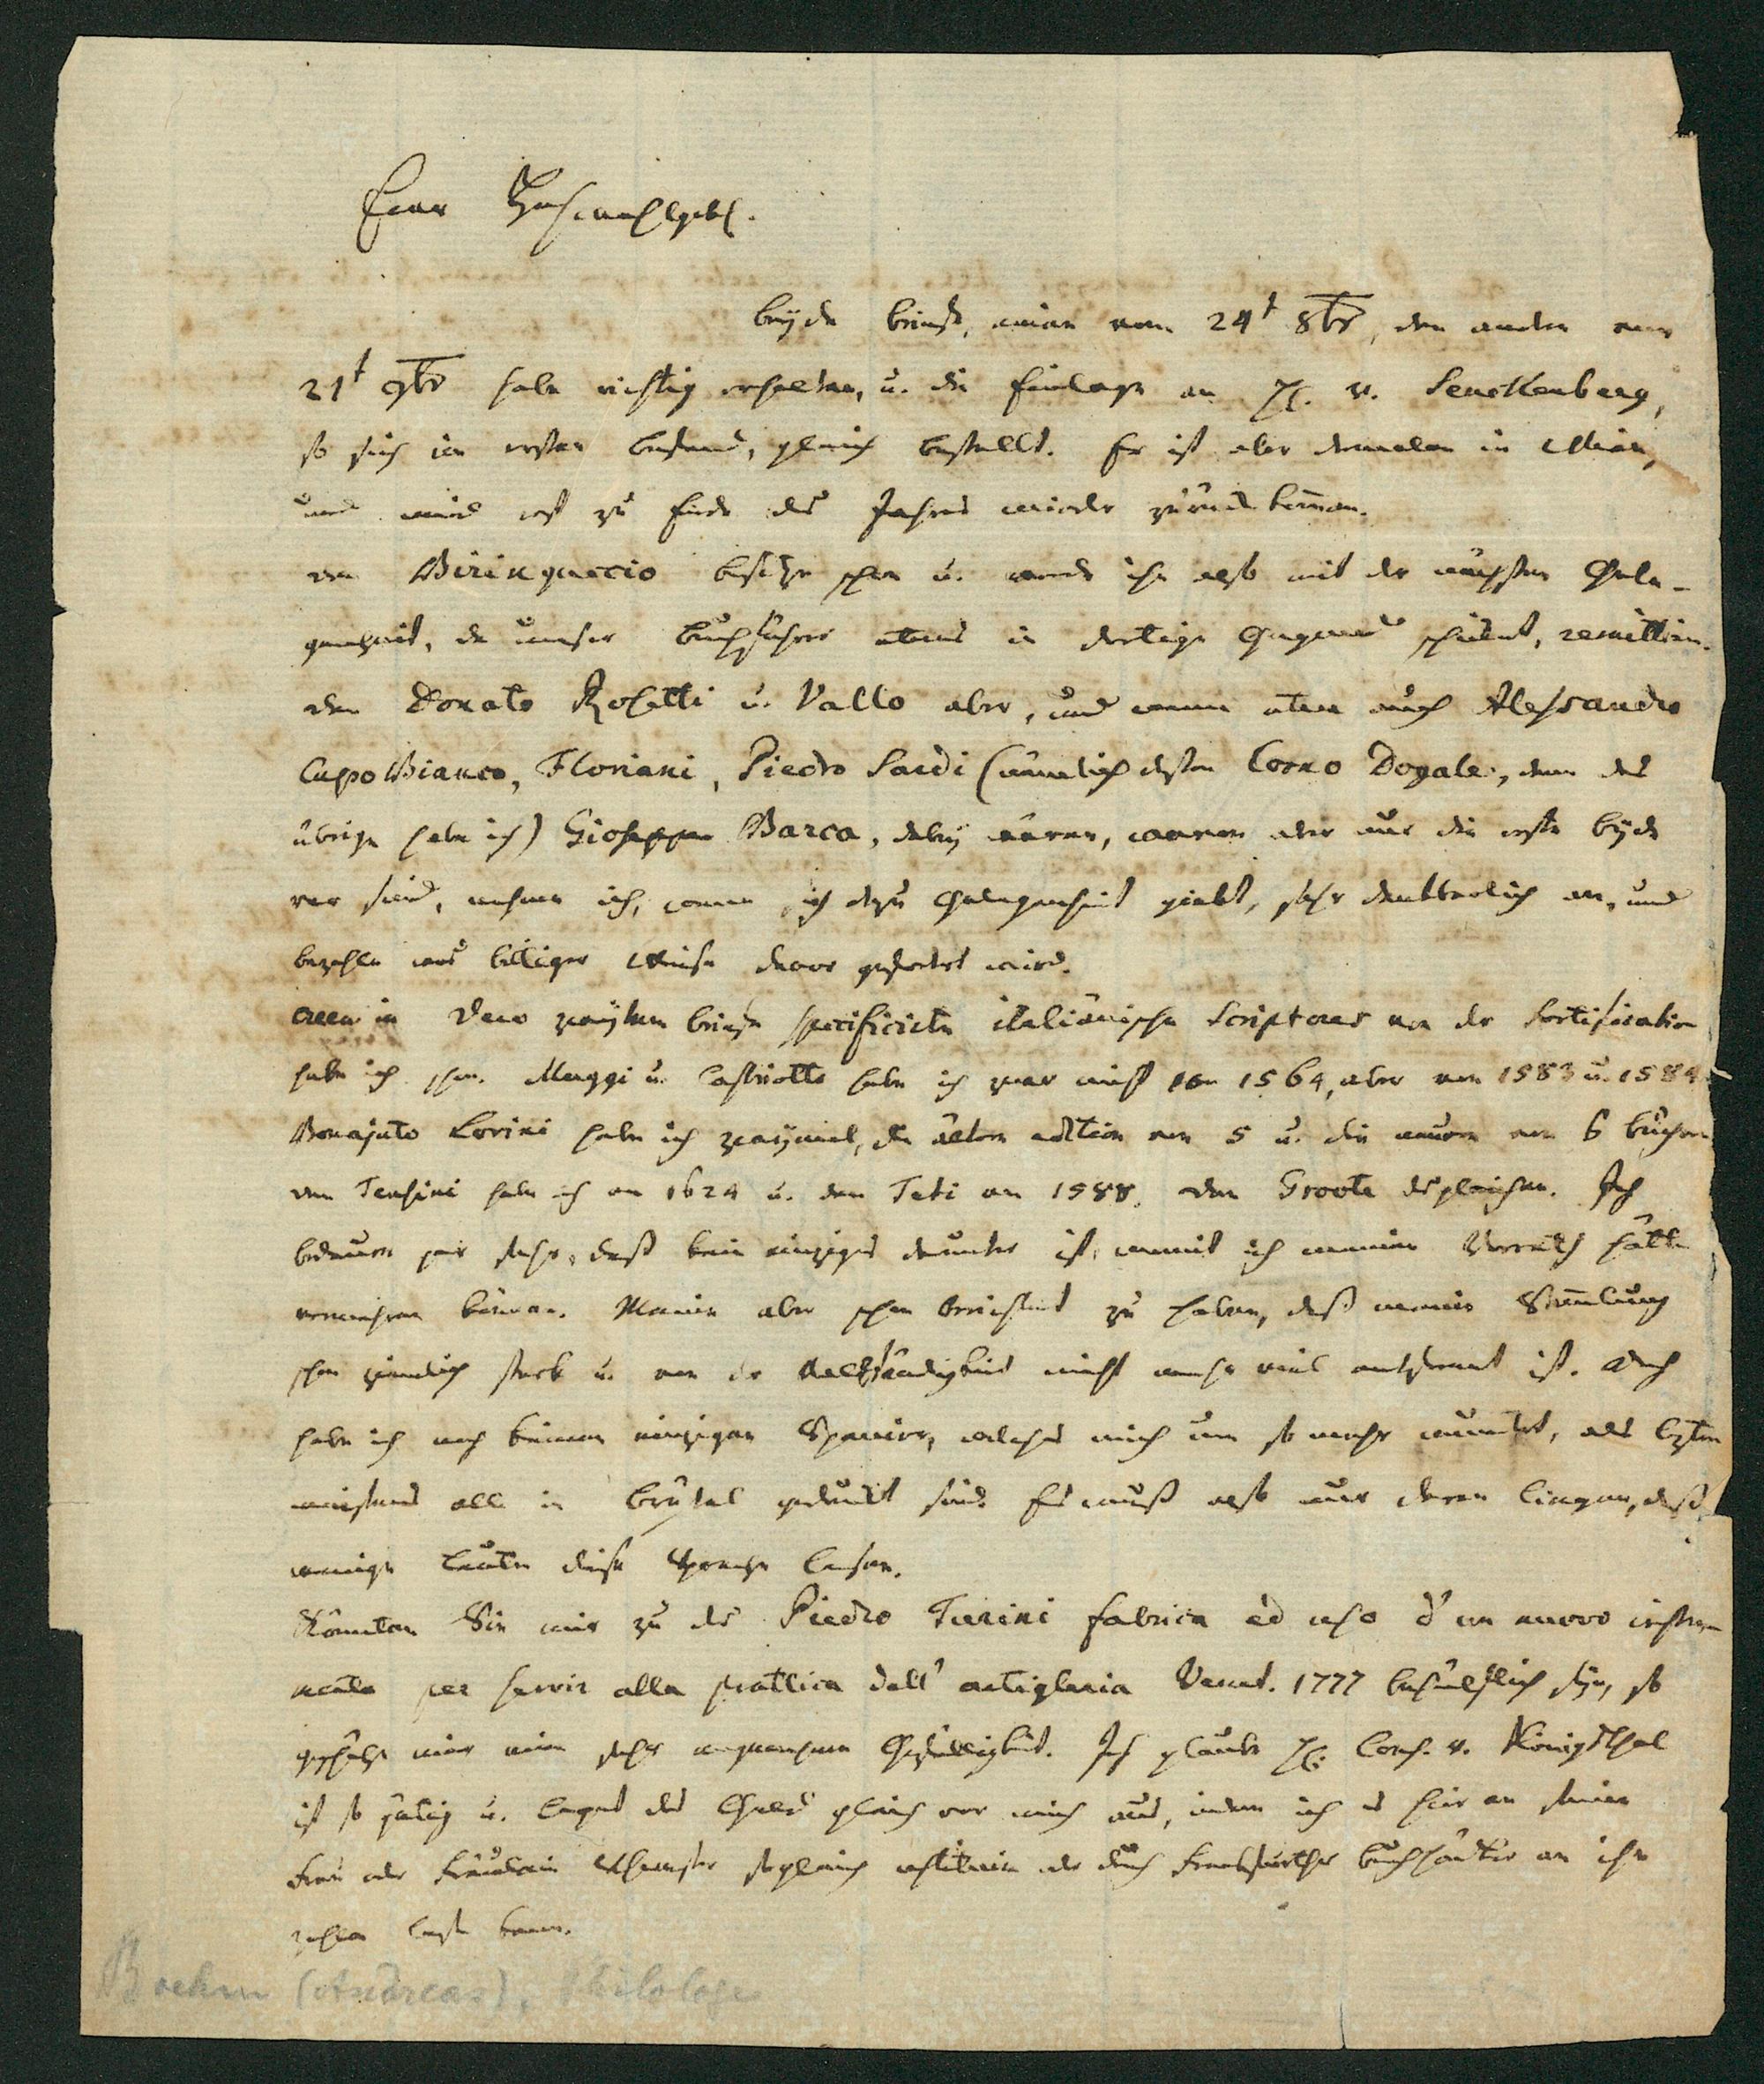 Euer Hochwohlgeb.
beyde briefe, einen vom 24t 8br, den andern vom
21t 9br habe richtig erhalten, u. die Einlage an H. v. Senckenberg,
so sich im ersten befand, gleich bestellt. Er ist aber dermalen in Wien,
und wird erst zu Ende des Jahres wieder zurück kommen.
den Biringuccio besitze schon u. werde ihn also mit der nächsten Gele-
genheit, da unser Buchführer etwas in dortige Gegend schickt, remittiren.
den Donato Rosetti u. Vallo aber, und wenn etwa auch Alessandro
Capo Bianco, Floriani, Piedro Sardi (nämlich dessen Corno Dogale, denn das
übrige habe ich) Gioseppe Barca, dabey wären, wovon aber nur die erste beyde
rar sind, nehme ich, wenn sich dazu Gelegenheit giebt, sehr danckbarlich an, und
bezahle was billiger Weise davor gefordert wird.
Alle in Dero zweyten briefe specificirte italiänische Scriptores von der Fortification
habe ich schon. Maggi u. Castriotto habe ich zwar nicht von 1564, aber von 1583 u. 1584
Bonajuto Lorini habe ich zweymal, die ältere edition von 5 u. die neuere von 6 büchern
den Tensini habe ich von 1624 u. den Teti von 1588. den Groote desgleichen. Ich
bedaure gar sehr, daß kein einziges darunter ist, womit ich meinen Vorrath hätte
vermehren können. Meine aber schon berichtet zu haben, daß meine Sammlung
schon ziemlich stark u. von der Vollständigkeit nicht mehr viel entfernt ist. Doch
habe ich noch keinen einzigen Spanier, welches mich um so mehr wundert, als letztere
meistens alle in Brüssel gedruckt sind. Es muß also nur daran liegen, daß
wenige Leute diese Sprache lesen.
Könnten Sie mir zu des Piedro Turini fabrica ed uso d'un nuovo instru-
mento per servir alla prattica dell' artigleria Venet. 1777 behülflich seyn, so
geschähe mir eine sehr angenehme Gefälligkeit. Ich glaube H. Cons. v. Königsthal
ist so gütig u. legt das Geld gleich vor mich aus, indem ich es hier an seine
Frau oder Fräulein Schwester sogleich restituire oder durch Franckfurther Buchhändler an ihn
zahlen lassen kann.
Boehm (Andreas), Philologe